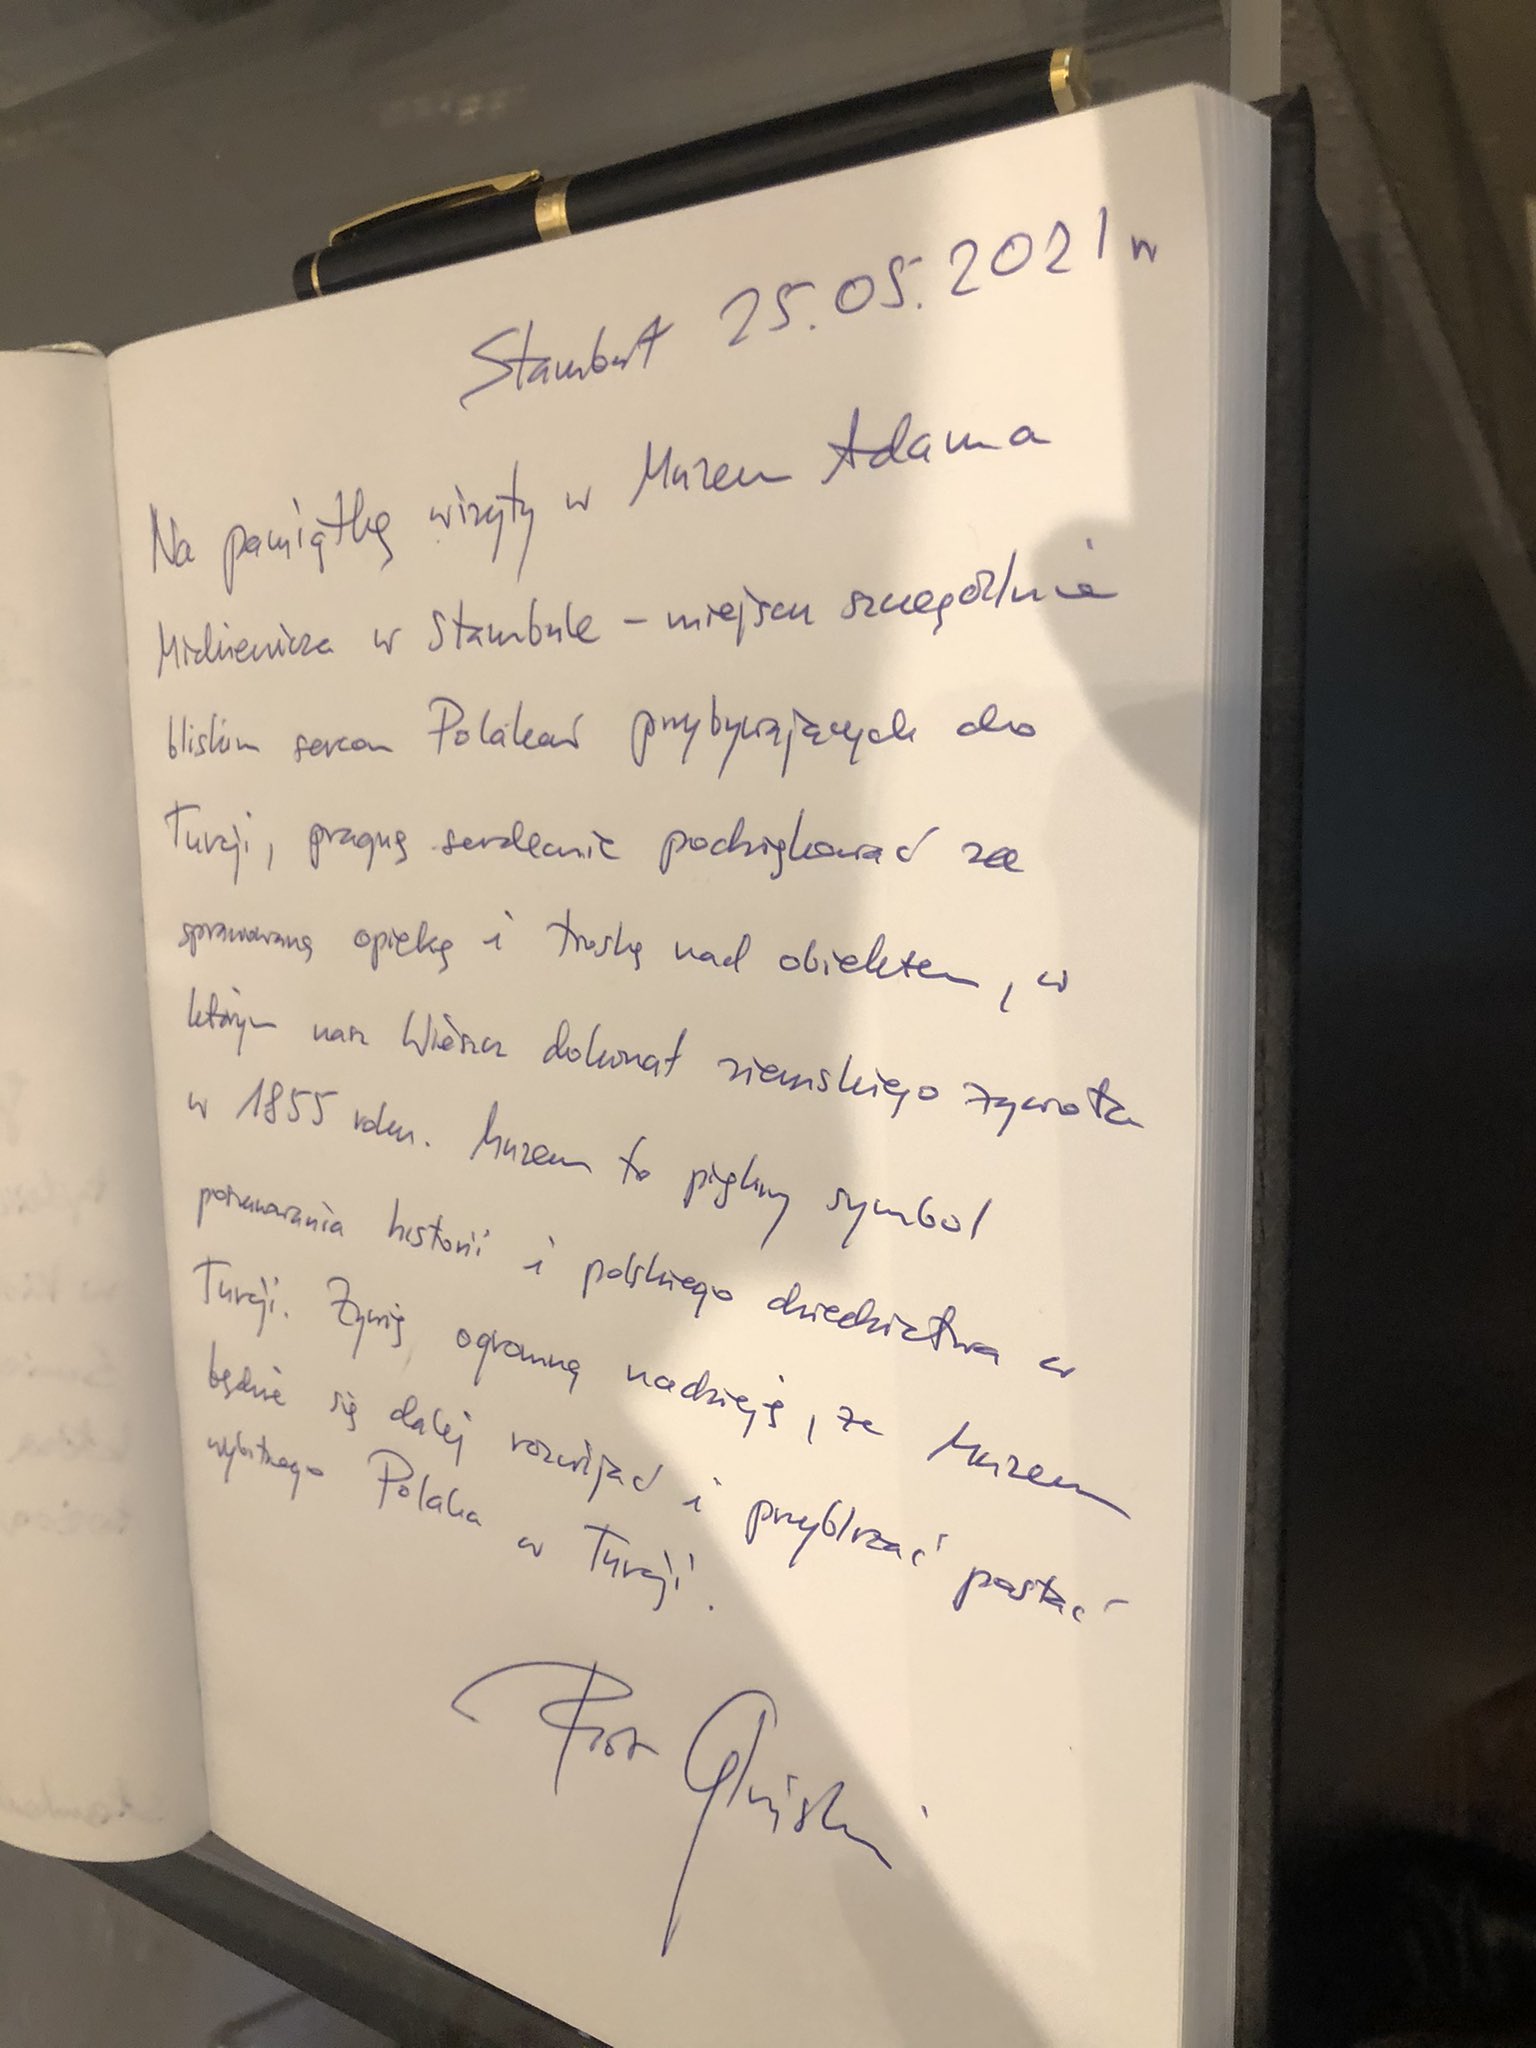 Stambuł 25.05.2021 r
Na pamiątkę wizyty w Muzeum Adama
Mickiewicza w Stambule – miejscu szczególnie
bliskim sercom Polaków przybywających do
Turcji, pragnę serdecznie podziękować za
sprawowaną opiekę i troskę nad obiektem, w
którym nasz Wieszcz dokonał ziemskiego żywota
w 1855 roku. Muzeum to piękny symbol
poszanowania historii i polskiego dziedzictwa w
Turcji. Żywię ogromną nadzieję, że Muzeum
będzie się dalej rozwijać i przybliżać postać
wybitnego Polaka w Turcji.
Piotr Gliński